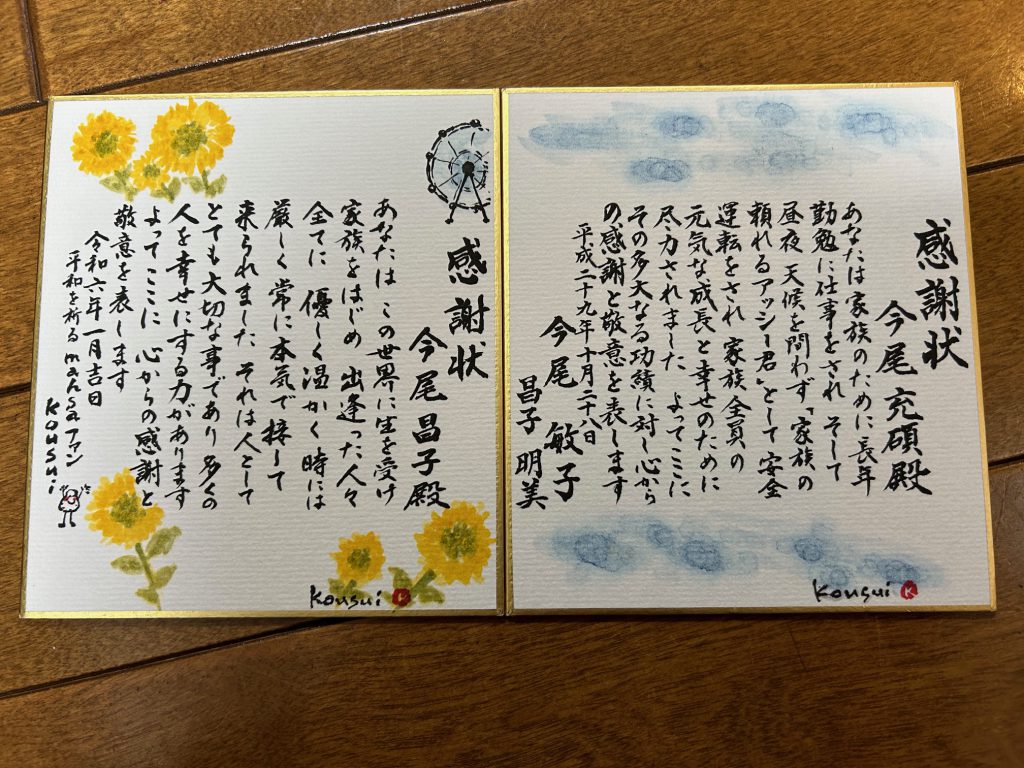 感謝状
今尾 充碩殿
あなたは家族のために長年
勤勉に仕事をされ そして
昼夜 天候を問わず「家族の
頼れるアッシー君」として安全
運転をされ 家族全員の
元気な成長と幸せのために
尽力されました よってここに
その多大なる功績に対し心から
の感謝と敬意を表します
平成二十九年十月二十八日
今尾 敏子
昌子 明美
Kousui
K
感謝状
今尾昌子殿
あなたは この世界に生を受け
家族をはじめ 出逢った人々
全てに 優しく温かく時には
厳しく常に本気で接して
来られました それは人として
とても大切な事であり多くの
人を幸せにする力があります
よってここに 心からの感謝と
敬意を表します
令和六年一月吉日
平和を祈るmahsaファン
Kousui
Kousui